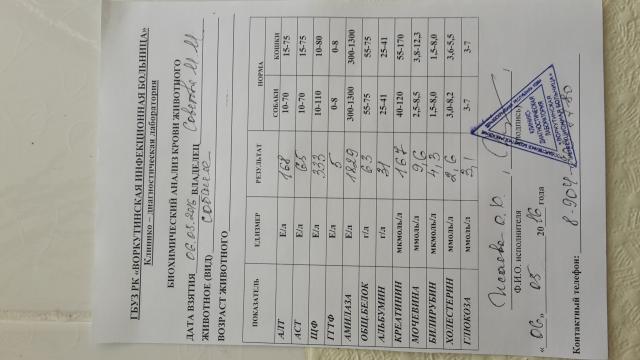 ГБУЗ РК «ВОРКУТИНСКАЯ ИНФЕКЦИОННАЯ БОЛЬНИЦА»
Клинико – диагностическая лаборатория
БИОХИМИЧЕСКИЙ АНАЛИЗ КРОВИ ЖИВОТНОГО
ДАТА ВЗЯТИЯ 06.05.2016 ВЛАДЕЛЕЦ
ЖИВОТНОЕ (ВИД) собачка
ВОЗРАСТ ЖИВОТНОГО
ПОКАЗАТЕЛЬ ЕД.ИЗМЕР РЕЗУЛЬТАТ НОРМА
СОБАКИ КОШКИ
АЛТ Е/л 168 10-70 15-75
АСТ Е/л 65 10-70 15-75
ЩФ Е/л 333 10-110 10-80
ГГТФ Е/л 5 0-8 0-8
АМИЛАЗА Е/л 1829 300-1300 300-1300
ОБЩ.БЕЛОК г/л 63 55-75 55-75
АЛЬБУМИН г/л 31 25-41 25-41
КРЕАТИНИН мкмоль/л 167 40-120 55-170
МОЧЕВИНА ммоль/л 9,6 2,5-8,5 3,8-12,3
БИЛИРУБИН мкмоль/л 4,3 1,5-8,0 1,5-8,0
ХОЛЕСТЕРИН ммоль/л 2,6 3,0-8,2 3,6-5,5
ГЛЮКОЗА ммоль/л 3,1 3-7 3-7
Исаева О.Ю.
Ф.И.О. исполнителя
« 06 » 05 2016 года
Контактный телефон: 8-904-